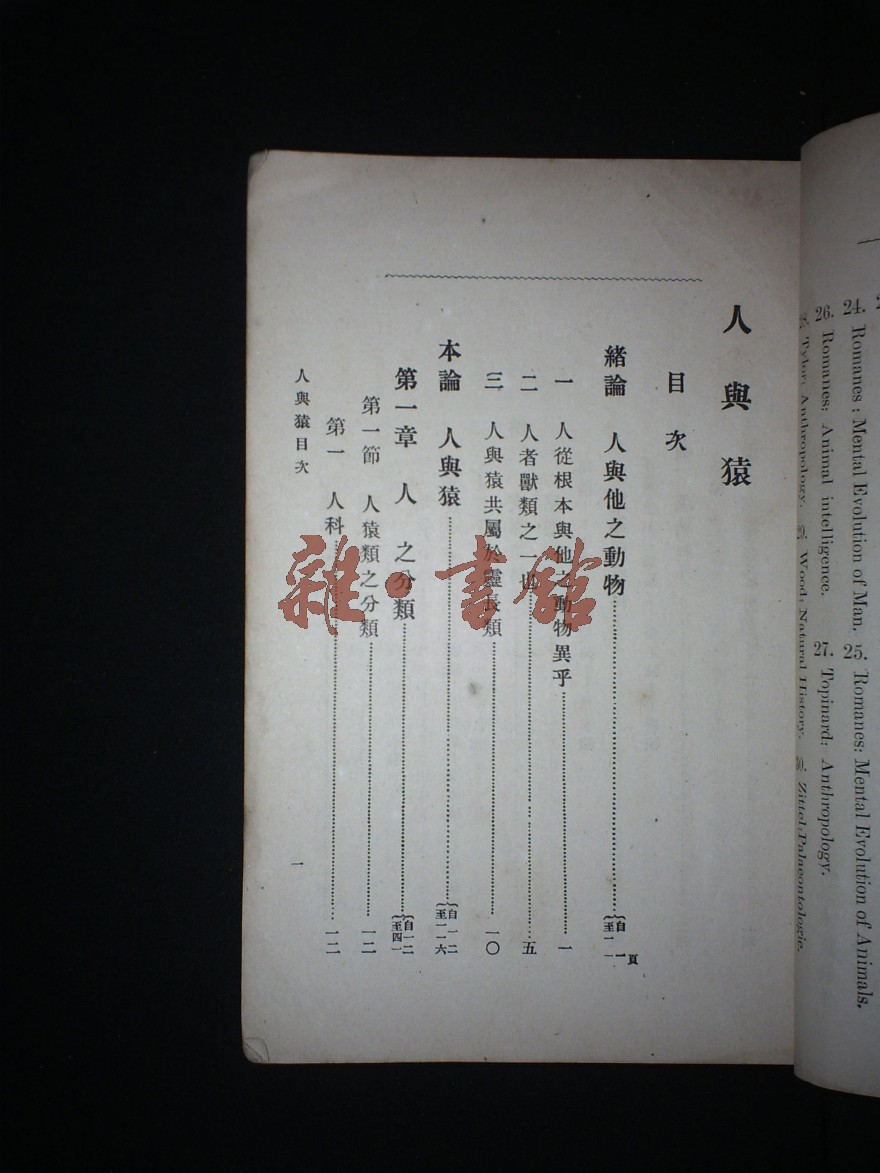 人與猿
目次
緒論 人與他之動物……{自一至一一頁
一 人從根本與他之動物異乎……一
二 人者獸類之一也……五
三 人與猿共屬於靈長類……一〇
本論 人與猿……{自一二至一一六
第一章 人 之分類……{自一二至四一
第一節 人猿類之分類……一二
第一 人科……一二
人與猿目次
一
雜·書館
24. Romanes: Mental Evolution of Man. 25. Romanes: Mental Evolution of Animals.
26. Romanes: Animal intelligence. 27. Topinard: Anthropology.
28. Tylor: Anthropology. 29. Wood: Natural History. 30. Zittel: Palaeontologie.